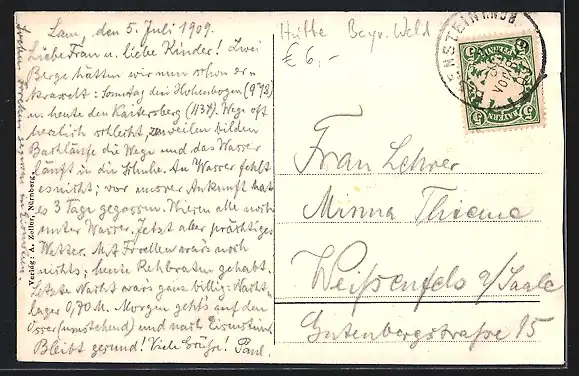 Lam, den 5. Juli 1909.
Liebe Frau u. liebe Kinder! Zwei
Berge hätten wir nun schon er-
kraxelt: Sonntag den Hohenbogen (978)
u. heute den Kaitersberg (1134). Wege oft
herzlich schlecht, zuweilen bilden
Bachläufe die Wege und das Wasser
läuft in die Schuhe. An Wasser fehlt
es nicht; vor unsrer Ankunft hat
es 3 Tage gegossen. Wiesen alle noch
unter Wasser. Jetzt aber prächtiges
Wetter. Mit Forellen war's noch
nichts; heute Rehbraten gehabt.
Letzte Nacht war's ganz billig: Nacht-
lager 0,70 M. Morgen geht's auf den
Osser (umstehend) und nach Eisenstein.
Bleibt gesund! Viele Grüße! Paul.
Verlag: A. Zoller, Nürnberg.
Hütte Bayr. Wald
€ 6,-
ENSTEIN
BAYERN
5
Frau Lehrer
Minna Thieme
Weißenfels a/Saale
Gutenbergstraße 15